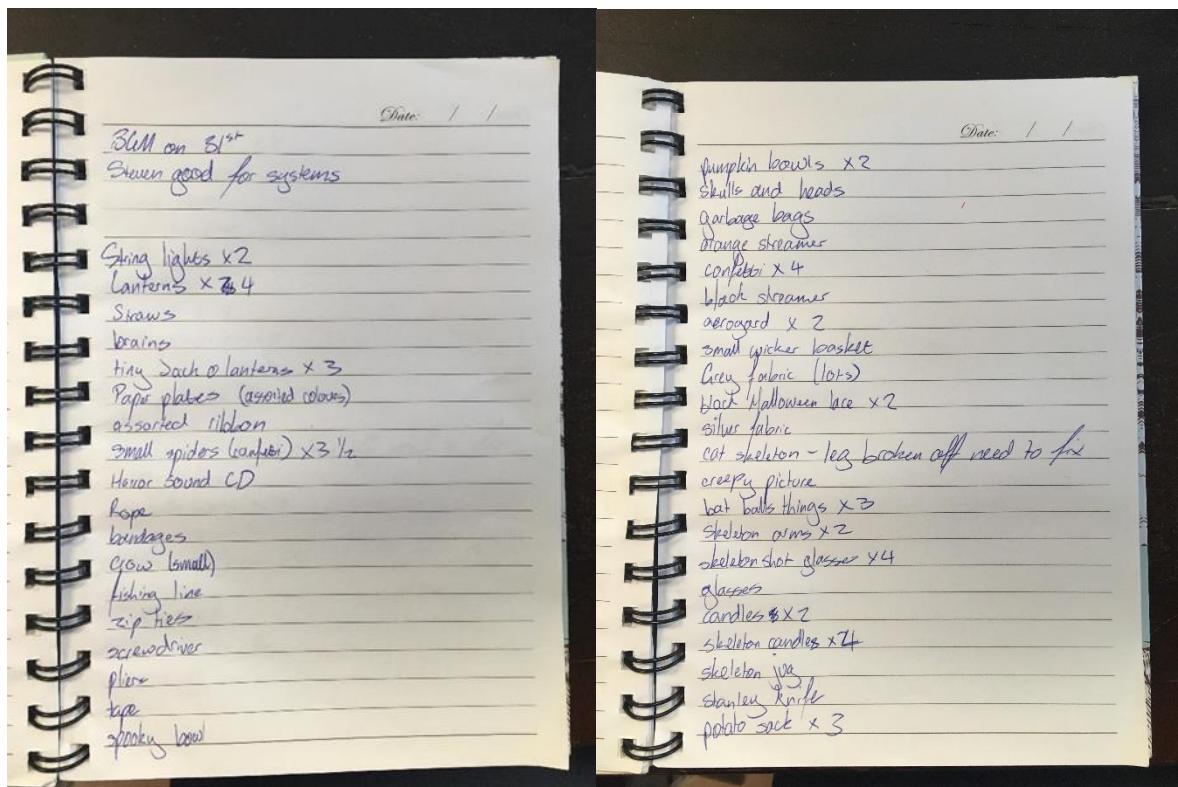 Date: / /
on 31st
Steven good for systems
String lights x2
Lanterns x 4
Straws
brains
tiny Jack o lanterns x 3
Paper plates (assorted colours)
assorted ribbon
small spiders (confetti) x3 1/2
Horror Sound CD
Rope
bandages
Crow (small)
fishing line
zip ties
screwdriver
pliers
tape
spooky bowl
Date: / /
pumpkin bowls x2
skulls and heads
garbage bags
orange streamer
confetti x 4
black streamer
aerogard x 2
small wicker basket
Grey fabric (lots)
black Halloween lace x2
silver fabric
cat skeleton - leg broken off need to fix
creepy picture
bat balls things x 3
skeleton arms x 2
skeleton shot glasses x4
glasses
candles x 2
skeleton candles x
skeleton jug
stanley knife
potato sack x 3